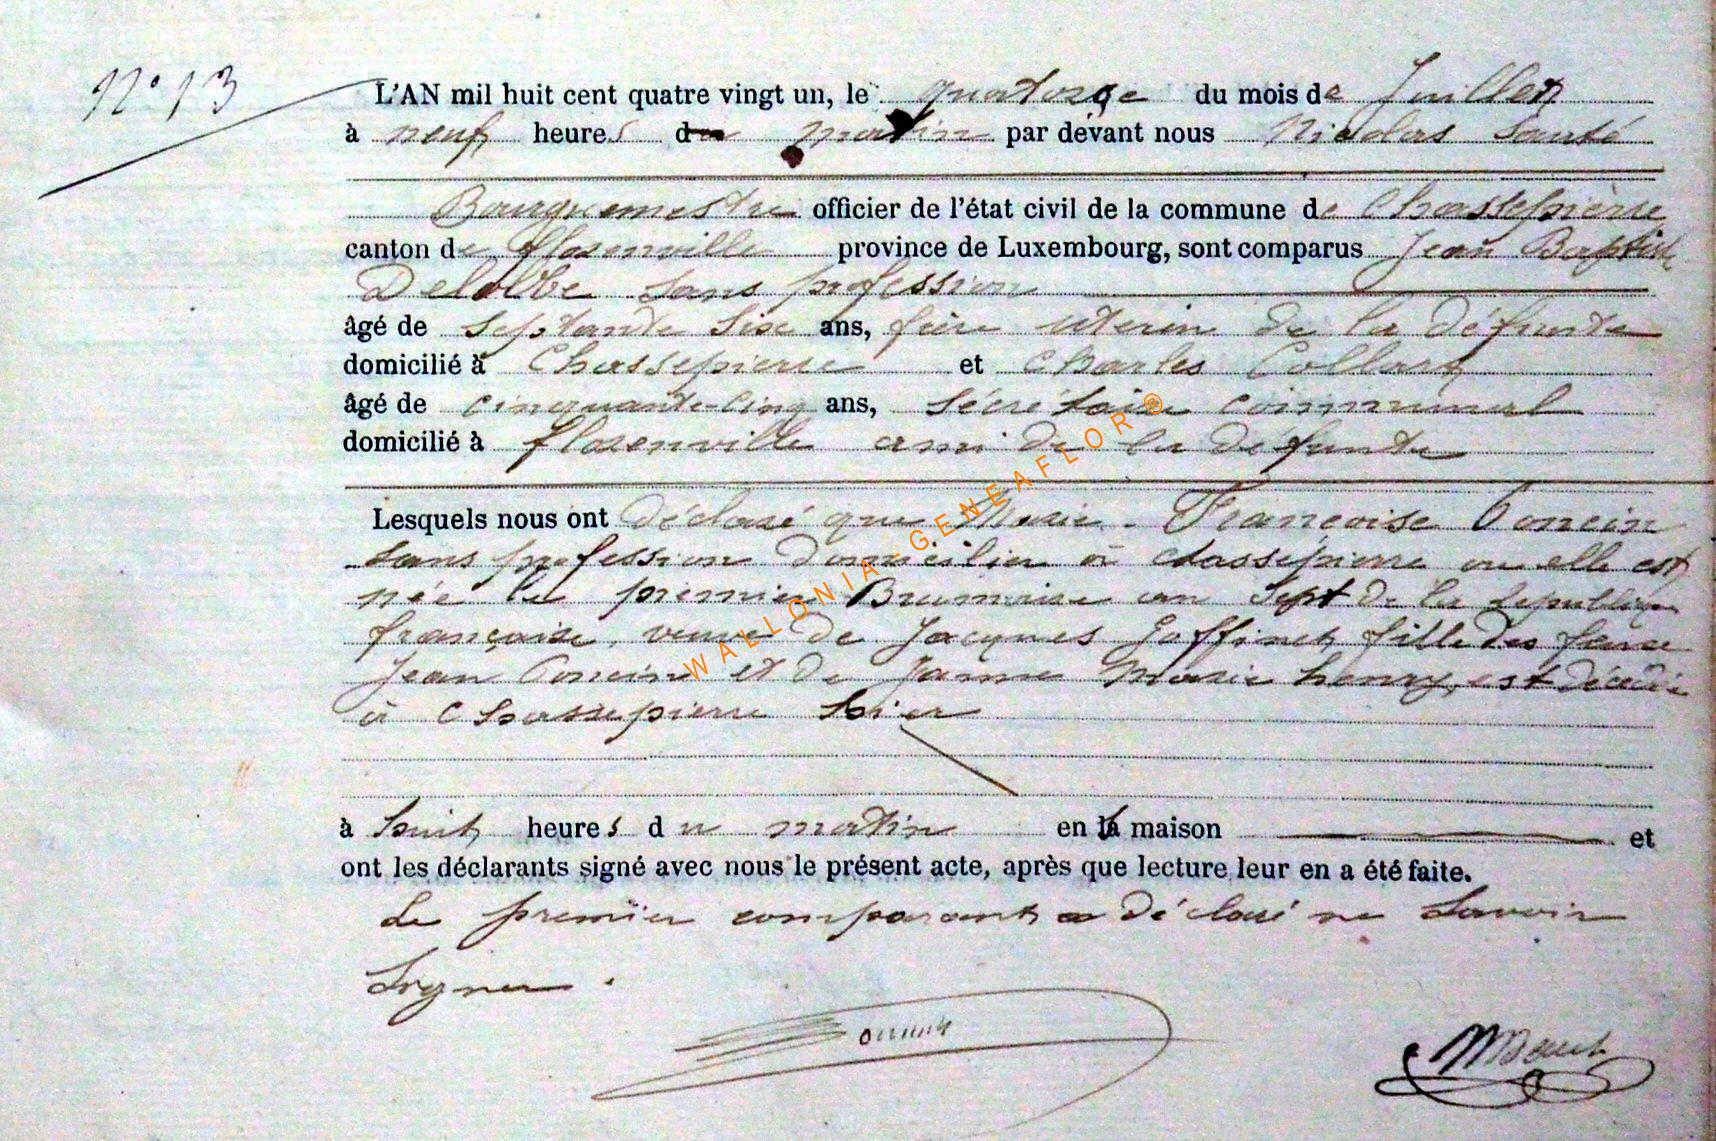 N° 13
L'AN mil huit cent quatre vingt un, le quatorze du mois de Juillet
à neuf heures du matin par devant nous Nicolas
Bourguemestre officier de l'état civil de la commune de Chassepierre
canton de Florenville province de Luxembourg, sont comparus Jean Baptiste
sans profession
âgé de septante six ans, frère uterin de la défunte
domicilié à Chassepierre et Charles Collart
âgé de cinquante-cinq ans, Sécrétaire communal
domicilié à florenville ami de la défunte
Lesquels nous ont déclaré que Marie Françoise Poncin
sans profession domiciliée à chassepierre ou elle est
née le premier Brumaire an Sept de la republique
française, veuve de Jacques Goffinet, fille des feux
Jean Poncin et de Jeanne Marie henry, est décédée
à Chassepierre hier
à huit heures du matin en sa maison et
ont les déclarants signé avec nous le présent acte, après que lecture leur en a été faite.
Le premier comparant a déclaré ne savoir
Signer.
WALLONIA-GENEAFLOR®